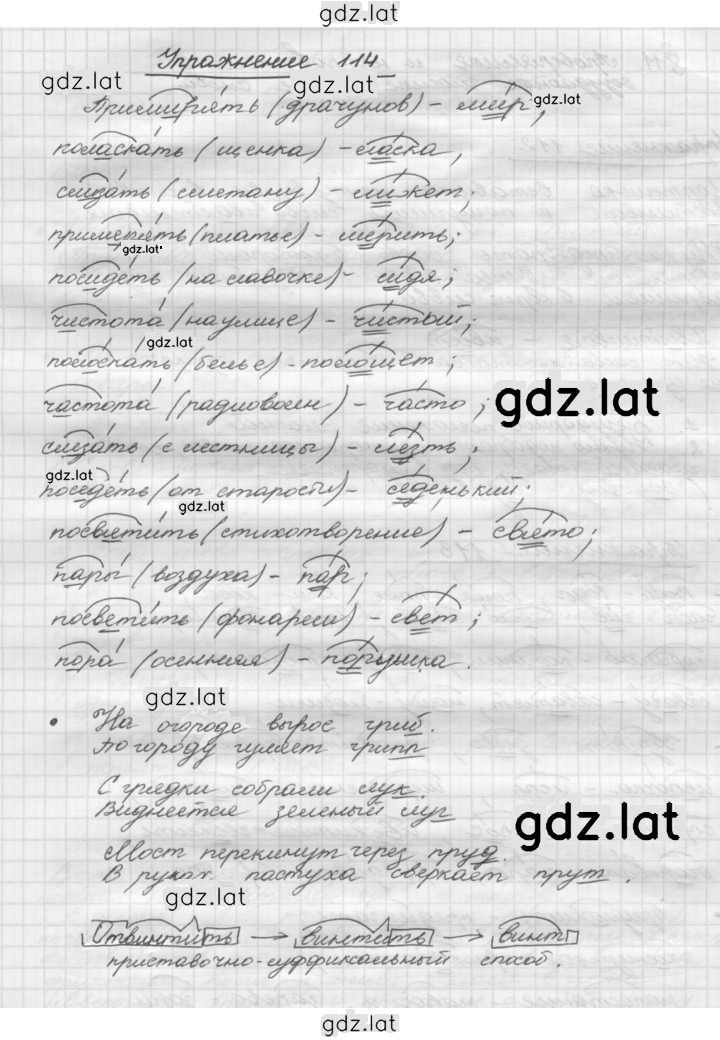 gdz.lat
Упражнение 114
gdz.lat
Примирять (драчунов) - мир,
gdz.lat
поласкать (щенка) - ласка,
слизать (сметану) - лижет;
примерять (платье) - мерить;
gdz.lat
посидеть (на лавочке) - сидя;
чистота (на улице) - чистый;
gdz.lat
полоскать (белье) - полощет;
gdz.lat
частота (радиоволн) - часто;
слезать (с лестницы) - лезть;
gdz.lat
поседеть (от старости) - седенький;
gdz.lat
посвятить (стихотворение) - свято;
пары (воздуха) - пар;
посветить (фонарем) - свет;
пора (осенняя) -
gdz.lat
• На огороде вырос гриб.
По городу гуляет грипп
С грядки собрали лук.
Виднеется зеленый луг
gdz.lat
Мост перекинут через пруд.
В руках пастуха сверкает прут.
gdz.lat
Отвинтить → винтить → винт
приставочно-суффиксальный способ.
gdz.lat